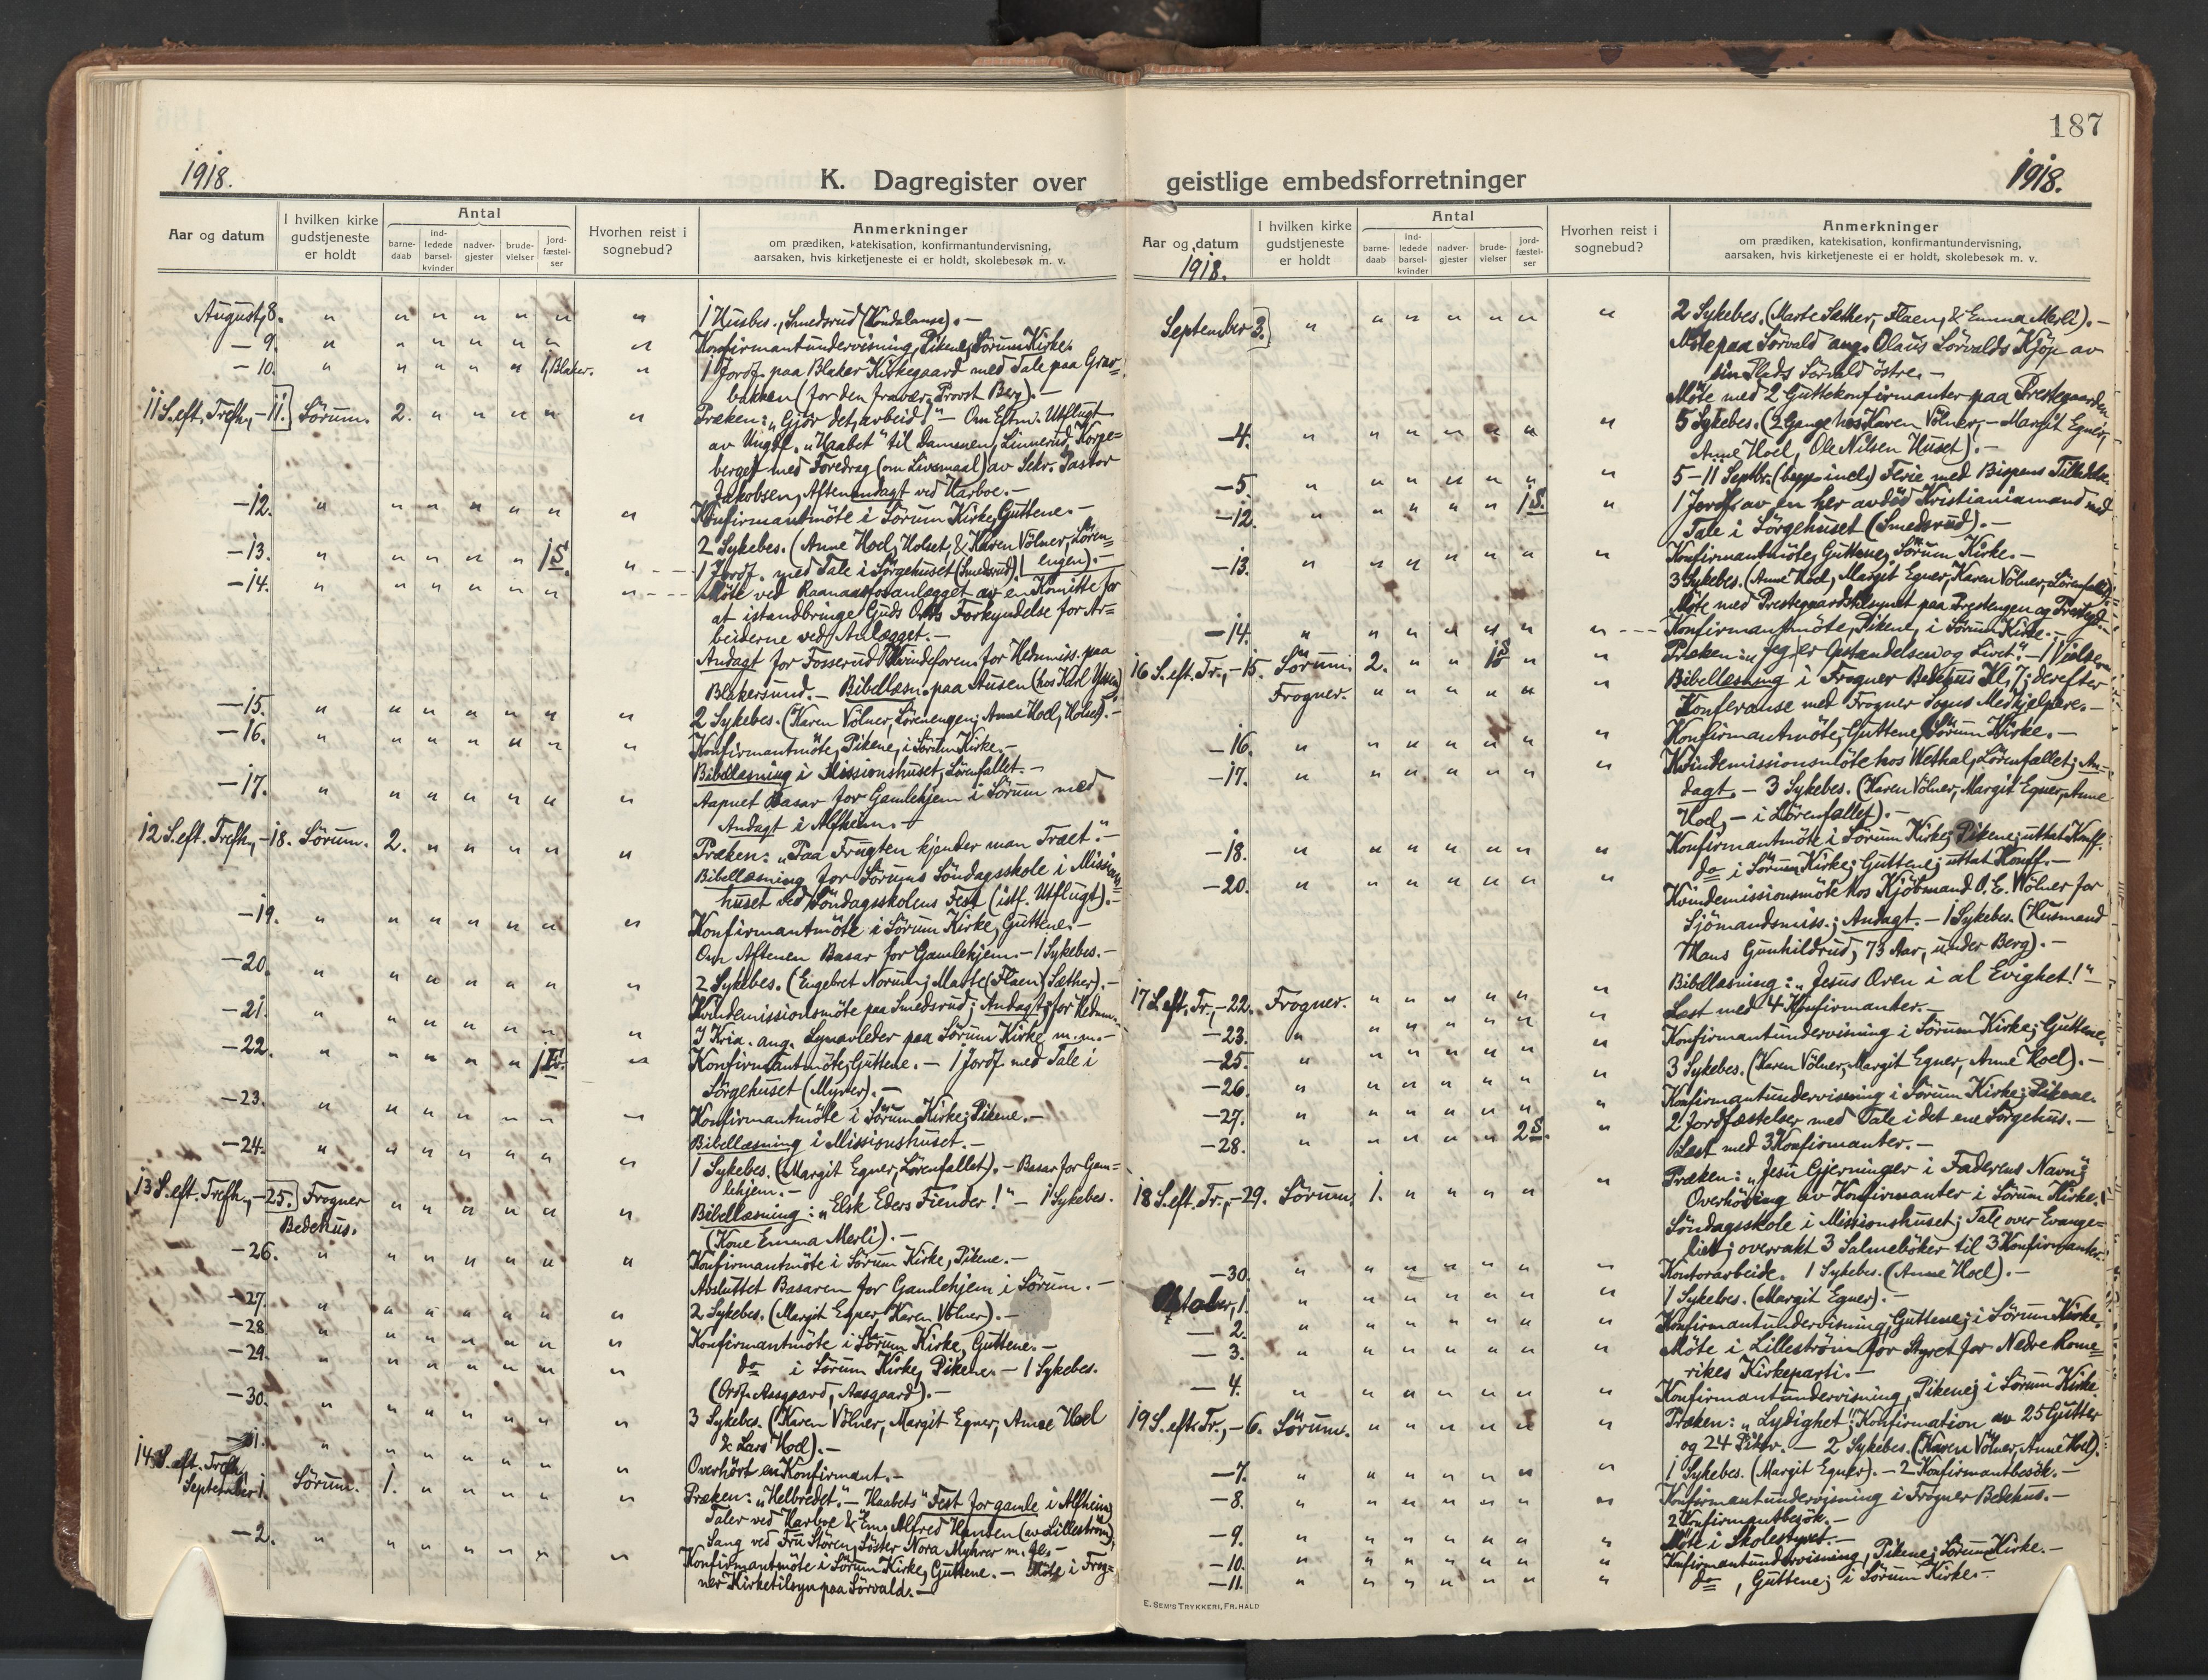 187
1918.
K. Dagregister over
geistlige embedsforretninger
1918.
Aar og datum
I hvilken kirke gudstjeneste er holdt
Antal
barne-daab
ind-ledede barsel-kvinder
nadver-gjester
brude-vielser
jord-fæstel-ser
Hvorhen reist i sognebud?
Anmerkninger
om prædiken, katekisation, konfirmantundervisning,
aarsaken, hvis kirketjeneste ei er holdt, skolebesøk m. v.
August, 8. " " " " " " " 1 Husbes., Smedsrud .-
- 9. " " " " " " " Konfirmantundervisning, Pikene, Sörum Kirke.
- 10. " " " " " 1, Blaker. " 1 Jordf. paa Blaker Kirkegaard med Tale paa Grav=
bakken (for den fravær. Provst Berg).-
11 S. eft. Trefh., - 11. Sörum. 2. " " " " " Præken: "Gjör det, arbeid!" - Om Eftm. Utflugt
av Ungf. "Haabet" til Damnen, Linnerud, Korpe=
berget med Foredrag (om Livsmaal) av Sekr. Pastor
Jakobsen, Aftenandagt ved Harboe.-
-12. " " " " " " " Konfirmantmöte i Sörum Kirke, Guttene.-
2 Sykebes. (Anne Hoel, Holset, & Karen Völner, Lören=
engen).-
-13. " " " " " 1 S. " 1 Jordf. med Tale i Sörgehuset (Smedsrud).
-14. " " " " " " " Möte ved Raanaasfosanlægget av en Komitte for
at istandbringe Guds Ords Forkyndelse for Ar=
beiderne ved Anlægget.-
Andagt for Fosserud Kvindeforen. for Hedmiss. paa
Blakersund.- Bibellæsn. paa Ausen (hos Karl ).
-15. " " " " " " " 2 Sykebes. (Karen Völner, Lörenengen; Anne Hoel, Holset).-
-16. " " " " " " " Konfirmantmöte, Pikene, i Sörum Kirke.-
Bibellæsning i Missionshuset, Lörenfallet.-
-17. " " " " " " " Aapnet Basar for Gamlehjem i Sörum med
Andagt i Alfheim.-
12 S. eft. Trefh., -18. Sörum. 2. " " " " " Præken: "Paa Frugten kjender man Træet."-
Bibellæsning for Sörums Söndagsskole i Missions=
huset ved Söndagsskolens Fest (istf. Utflugt).-
-19. " " " " " " " Konfirmantmöte i Sörum Kirke, Guttene.-
Om Aftenen Basar for Gamlehjem.- 1 Sykebes.-
-20. " " " " " " " 2 Sykebes. (Engebret Norum; Marte (Flaen) Sæther).-
-21. " " " " " " " Kvindemissionsmöte paa Smedsrud; Andagt; for Hedm.-
I Kria. ang. Lynavleder paa Sörum Kirke m.m.-
-22. " " " " " 1 Fr. " Konfirmantmöte, Guttene.- 1 Jordf. med Tale i
Sörgehuset (Myrer).-
-23. " " " " " " " Konfirmantmöte i Sörum Kirke; Pikene.-
Bibellæsning i Missionshuset.-
-24. " " " " " " " 1 Sykebes. (Margit Egner, Lörenfallet).- Basar for Gam=
lehjem.-
13 S. eft. Trefh., -25. Frogner Bedehus. " " " " " " Bibellæsning: "Elsk Eders Fiender!" - 1 Sykebes.
(Kone Emma Merli).-
-26. " " " " " " " Konfirmantmöte i Sörum Kirke, Pikene.-
Absluttet Basaren for Gamlehjem i Sörum.-
-27. " " " " " " " 2 Sykebes. (Margit Egner, Karen Völner).-
-28. " " " " " " " Konfirmantmöte i Sörum Kirke, Guttene.-
-29. " " " " " " " do i Sörum Kirke, Pikene.- 1 Sykebes.
(Ordf. Aasgaard, Aasgaard).-
-30. " " " " " " " 3 Sykebes. (Karen Völner, Margit Egner, Anne Hoel
& Lars Hoel).-
-31. " " " " " " " Overhört en Konfirmant.-
14 S. eft. Trefh.
September 1. Sörum. 1. " " " " " Præken: "Helbredet."- "Haabets" Fest for gamle i Alfheim;
Taler ved Harboe & Em. Alfred Hansen (av Lilleström),
Sang ved Fru Stören, Söster Nora Myhrer m. fl.-
-2. " " " " " " " Konfirmantmöte i Sörum Kirke, Guttene.- Möte i Frog=
ner Kirketilsyn paa Sörvald.-
Aar og datum
1918.
I hvilken kirke gudstjeneste er holdt
Antal
barne-daab
ind-ledede barsel-kvinder
nadver-gjester
brude-vielser
jord-fæstel-ser
Hvorhen reist i sognebud?
Anmerkninger
om prædiken, katekisation, konfirmantundervisning,
aarsaken, hvis kirketjeneste ei er holdt, skolebesøk m. v.
September 3. " " " " " " " 2 Sykebes. (Marte Sæther, Flaen, & Emma Merli).-
Möte paa Sörvald ang. Olaus Sörvalds Kjöp av
sin Plads Sörvald östre.-
Möte med 2 Guttekonfirmanter paa Prestegaarden
-4. " " " " " " " 5 Sykebes. (2 Gange hos Karen Völner,- Margit Egner,
Anne Hoel, Ole Nilsen Huset).-
-5. " " " " " " " 5-11 Septbr. (begge incl.) Ferie med Bispens Tilladelse.
-12. " " " " " 1 S. " 1 Jordf. av en her avdöd Kristianiamand med
Tale i Sörgehuset (Smedsrud).-
Konfirmantmöte, Guttene, Sörum Kirke.-
-13. " " " " " " " 3 Sykebes. (Anne Hoel, Margit Egner, Karen Völner, Lörenfallet).-
Möte med Prestegaardstilsynet paa Prestengen og
-14. " " " " " " " Konfirmantmöte, Pikene, i Sörum Kirke.-
16 S. eft. Tr., -15. Sörum. 2. " " 1 S " " Præken: "Jeg er Opstandelsen og Livet."- 1 Vielse.
Frogner. " " " " " " Bibellæsning i Frogner Bedehus Kl. 7; derefter
Konferanse med Frogner Sogns Medhjelpere.-
-16. " " " " " " " Konfirmantmöte, Guttene, Sörum Kirke.-
-17. " " " " " " " Kvindemissionsmöte hos Wethal, Lörenfallet; An=
dagt.- 3 Sykebes. (Karen Völner, Margit Egner, Anne
Hoel,- i Lörenfallet).-
-18. " " " " " " " Konfirmantmöte i Sörum Kirke; Pikene; uttat Konff.
do i Sörum Kirke; Guttene; uttat Konff.-
-20. " " " " " " " Kvindemissionsmöte hos Kjöbmand O. E. Völner for
Sjömandsmiss.; Andagt.- 1 Sykebes. (Husmand
Hans Gunhildrud, 73 Aar, under Berg).-
17 S. eft. Tr., -22. Frogner. " " " " " " Bibellæsning: "Jesus Oven i al Evighet!"-
Læst med 4 Konfirmanter.-
-23. " " " " " " " Konfirmantundervisning i Sörum Kirke; Guttene.
-25. " " " " " " " 3 Sykebes. (Karen Völner, Margit Egner, Anne Hoel).-
-26. " " " " " " "
-27. " " " " " " " Konfirmantundervisning i Sörum Kirke; Pikene.
-28. " " " " " 2 S. " 2 Jordfæstelser med Tale i det ene Sörgehus.-
Læst med 3 Konfirmanter.-
18 S. eft. Tr., -29. Sörum. 1. " " " " " Præken: "Jesu Gjerninger i Faderens Navn";
Overhöring av Konfirmanter i Sörum Kirke.
Söndagsskole i Missionshuset; Tale over Evange=
liet; overrakt 3 Salmeböker til 3 Konfirmanter.
-30. " " " " " " " Kontorarbeide. 1 Sykebes. (Anne Hoel).-
Oktober, 1. " " " " " " " 1 Sykebes. (Margit Egner).-
- 2. " " " " " " " Konfirmantundervisning, Guttene; i Sörum Kirke.
- 3. " " " " " " " Möte i Lilleström for Styret for Nedre Rome=
rikes Kirkeparti.-
- 4. " " " " " " " Konfirmantundervisning, Pikene; i Sörum Kirke.
19 S. eft. Tr., - 6. Sörum. " " " " " " Præken: "Lydighet." Konfirmation av 25 Gutter
og 24 Piker.- 2 Sykebes. (Karen Völner, Anne Hoel).
-7. " " " " " " " 1 Sykebes. (Margit Egner).- 2 Konfirmantbesök.-
-8. " " " " " " " Konfirmantundervisning i Frogner Bedehus.-
2 Konfirmantbesök.-
-9. " " " " " " " Möte i Skolestyret.-
-10. " " " " " " " Konfirmantundervisning, Pikene; Sörum Kirke.-
-11. " " " " " " " do, Guttene; i Sörum Kirke.-
E. SEM'S TRYKKERI, FR.HALD